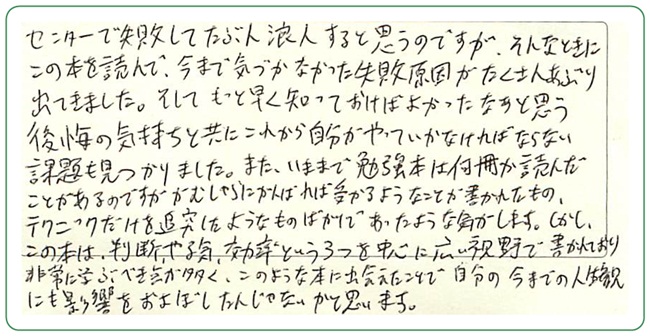 センターで失敗してたぶん浪人すると思うのですが、そんなときに
この本を読んで、今まで気づかなかった失敗原因がたくさんあぶり
出てきました。そしてもっと早く知っておけばよかったなあと思う
後悔の気持ちと共にこれから自分がやっていかなければならない
課題も見つかりました。また、いままで勉強本は何冊か読んだ
ことがあるのですががむしゃらにがんばれば受かるようなことが書かれたもの、
テクニックだけを追究したようなものばかりであったような気がします。しかし、
この本は、判断、やる気、効率という3つを中心に広い視野で書かれており
非常に学ぶべき点が多く、このような本に出会えたことで自分の今までの人生観
にも影響をおよぼしたんじゃないかと思います。